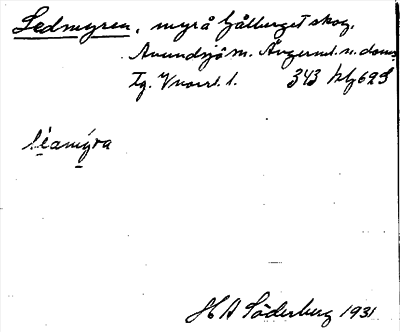 Ledmyren, myrå Gålberget skog,
Anundsjö sn. Ångerml. n. doms.
Tg. V norrl. l. 343 kfg 629
léamýra
H A Söderberg 1931